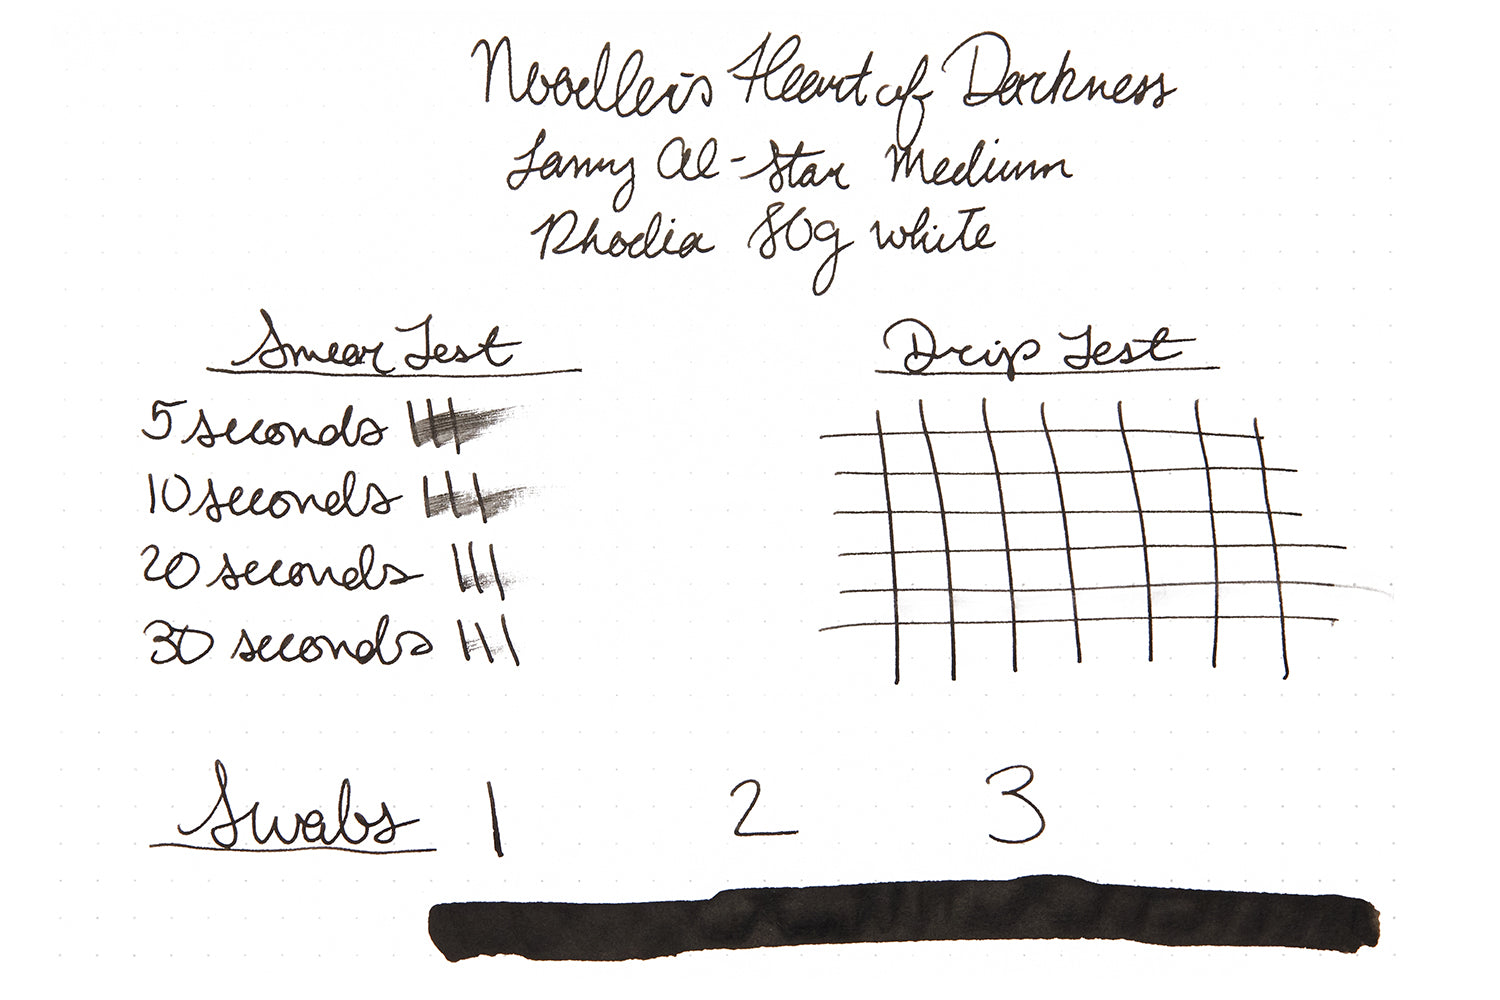 Noodler's Heart of Darkness
Lamy Al-Star Medium
Rhodia 80g white
Smear Test
5 seconds
10 seconds
20 seconds
30 seconds
Drip Test
Swabs 1 2 3